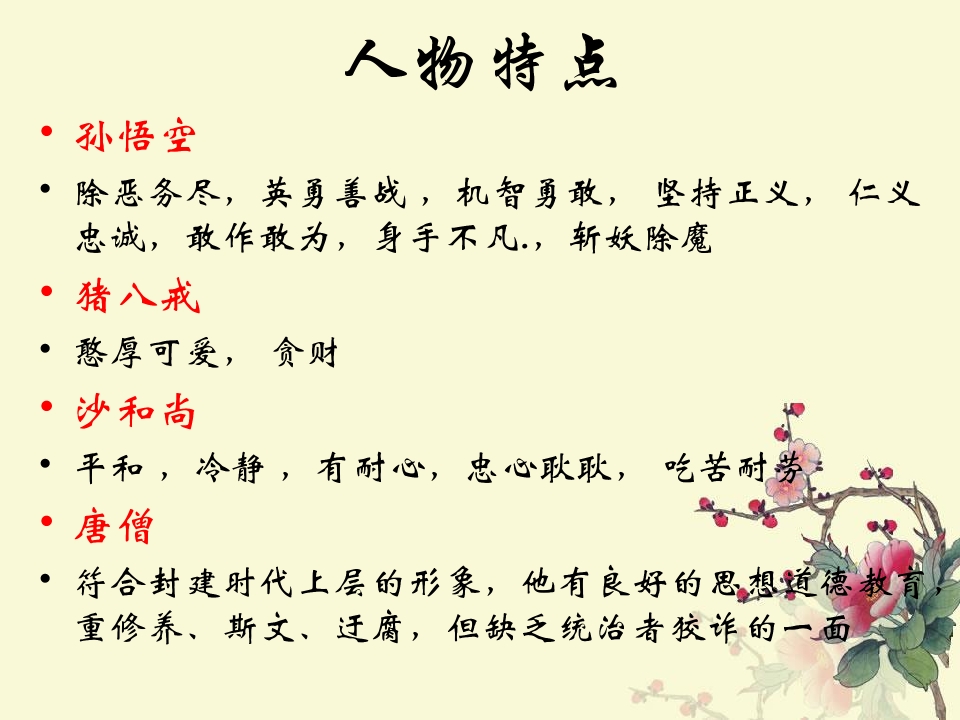 人物特点
• 孙悟空
• 除恶务尽，英勇善战 ，机智勇敢， 坚持正义， 仁义
忠诚，敢作敢为，身手不凡.，斩妖除魔
• 猪八戒
• 憨厚可爱， 贪财
• 沙和尚
• 平和 ，冷静 ，有耐心，忠心耿耿， 吃苦耐劳
• 唐僧
• 符合封建时代上层的形象，他有良好的思想道德教育，
重修养、斯文、迂腐，但缺乏统治者狡诈的一面